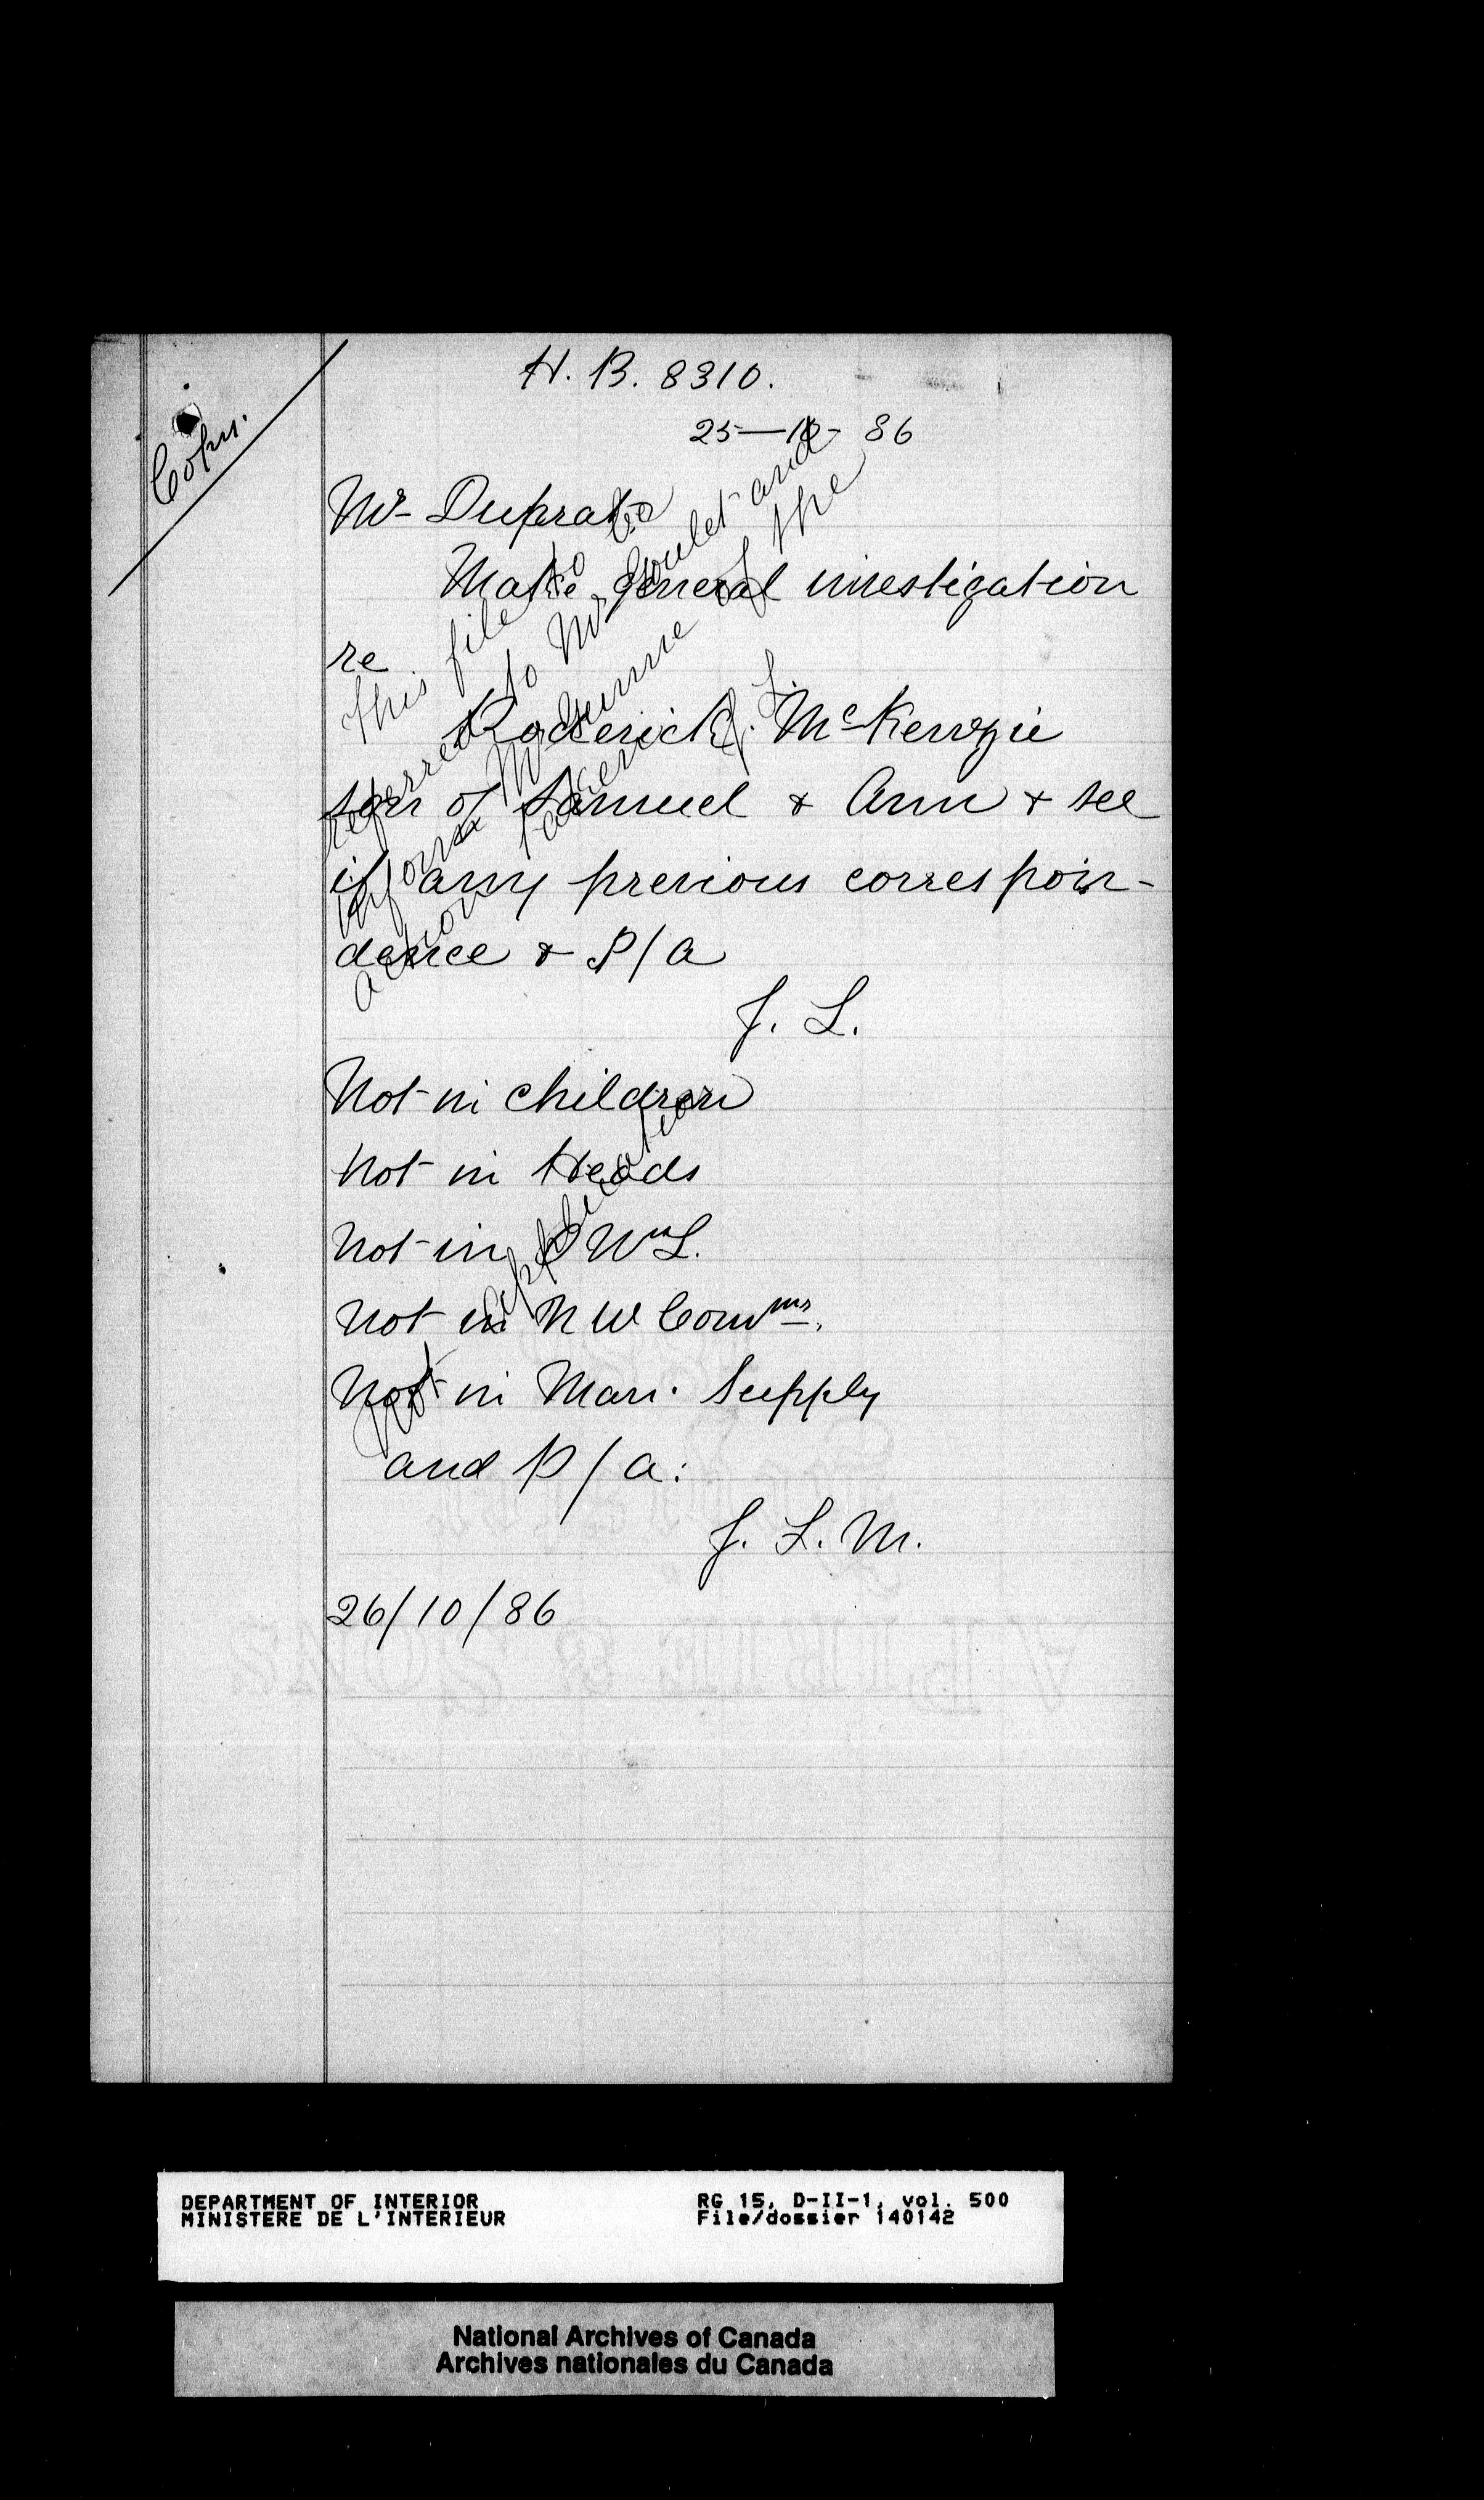 H. B. 8310.
25—10— 86
Copy.
Mr Duprat
Make general investigation
re
Roderick McKenzie
son of Samuel & Ann & see
if any previous correspon-
dence & P/A
J. L.
This file to be
referred to Mr Goulet and
inform Mr Dunne of the
action taken
J. L.
Not in Children
Not in Heads
Not in O Wn L.
Not in N W Commrs.
Not in Man. Supply
and P/a:
J. L. M.
Not application
26/10/86
DEPARTMENT OF INTERIOR
MINISTERE DE L'INTERIEUR
RG 15, D-II-1, vol. 500
File/dossier 140142
National Archives of Canada
Archives nationales du Canada